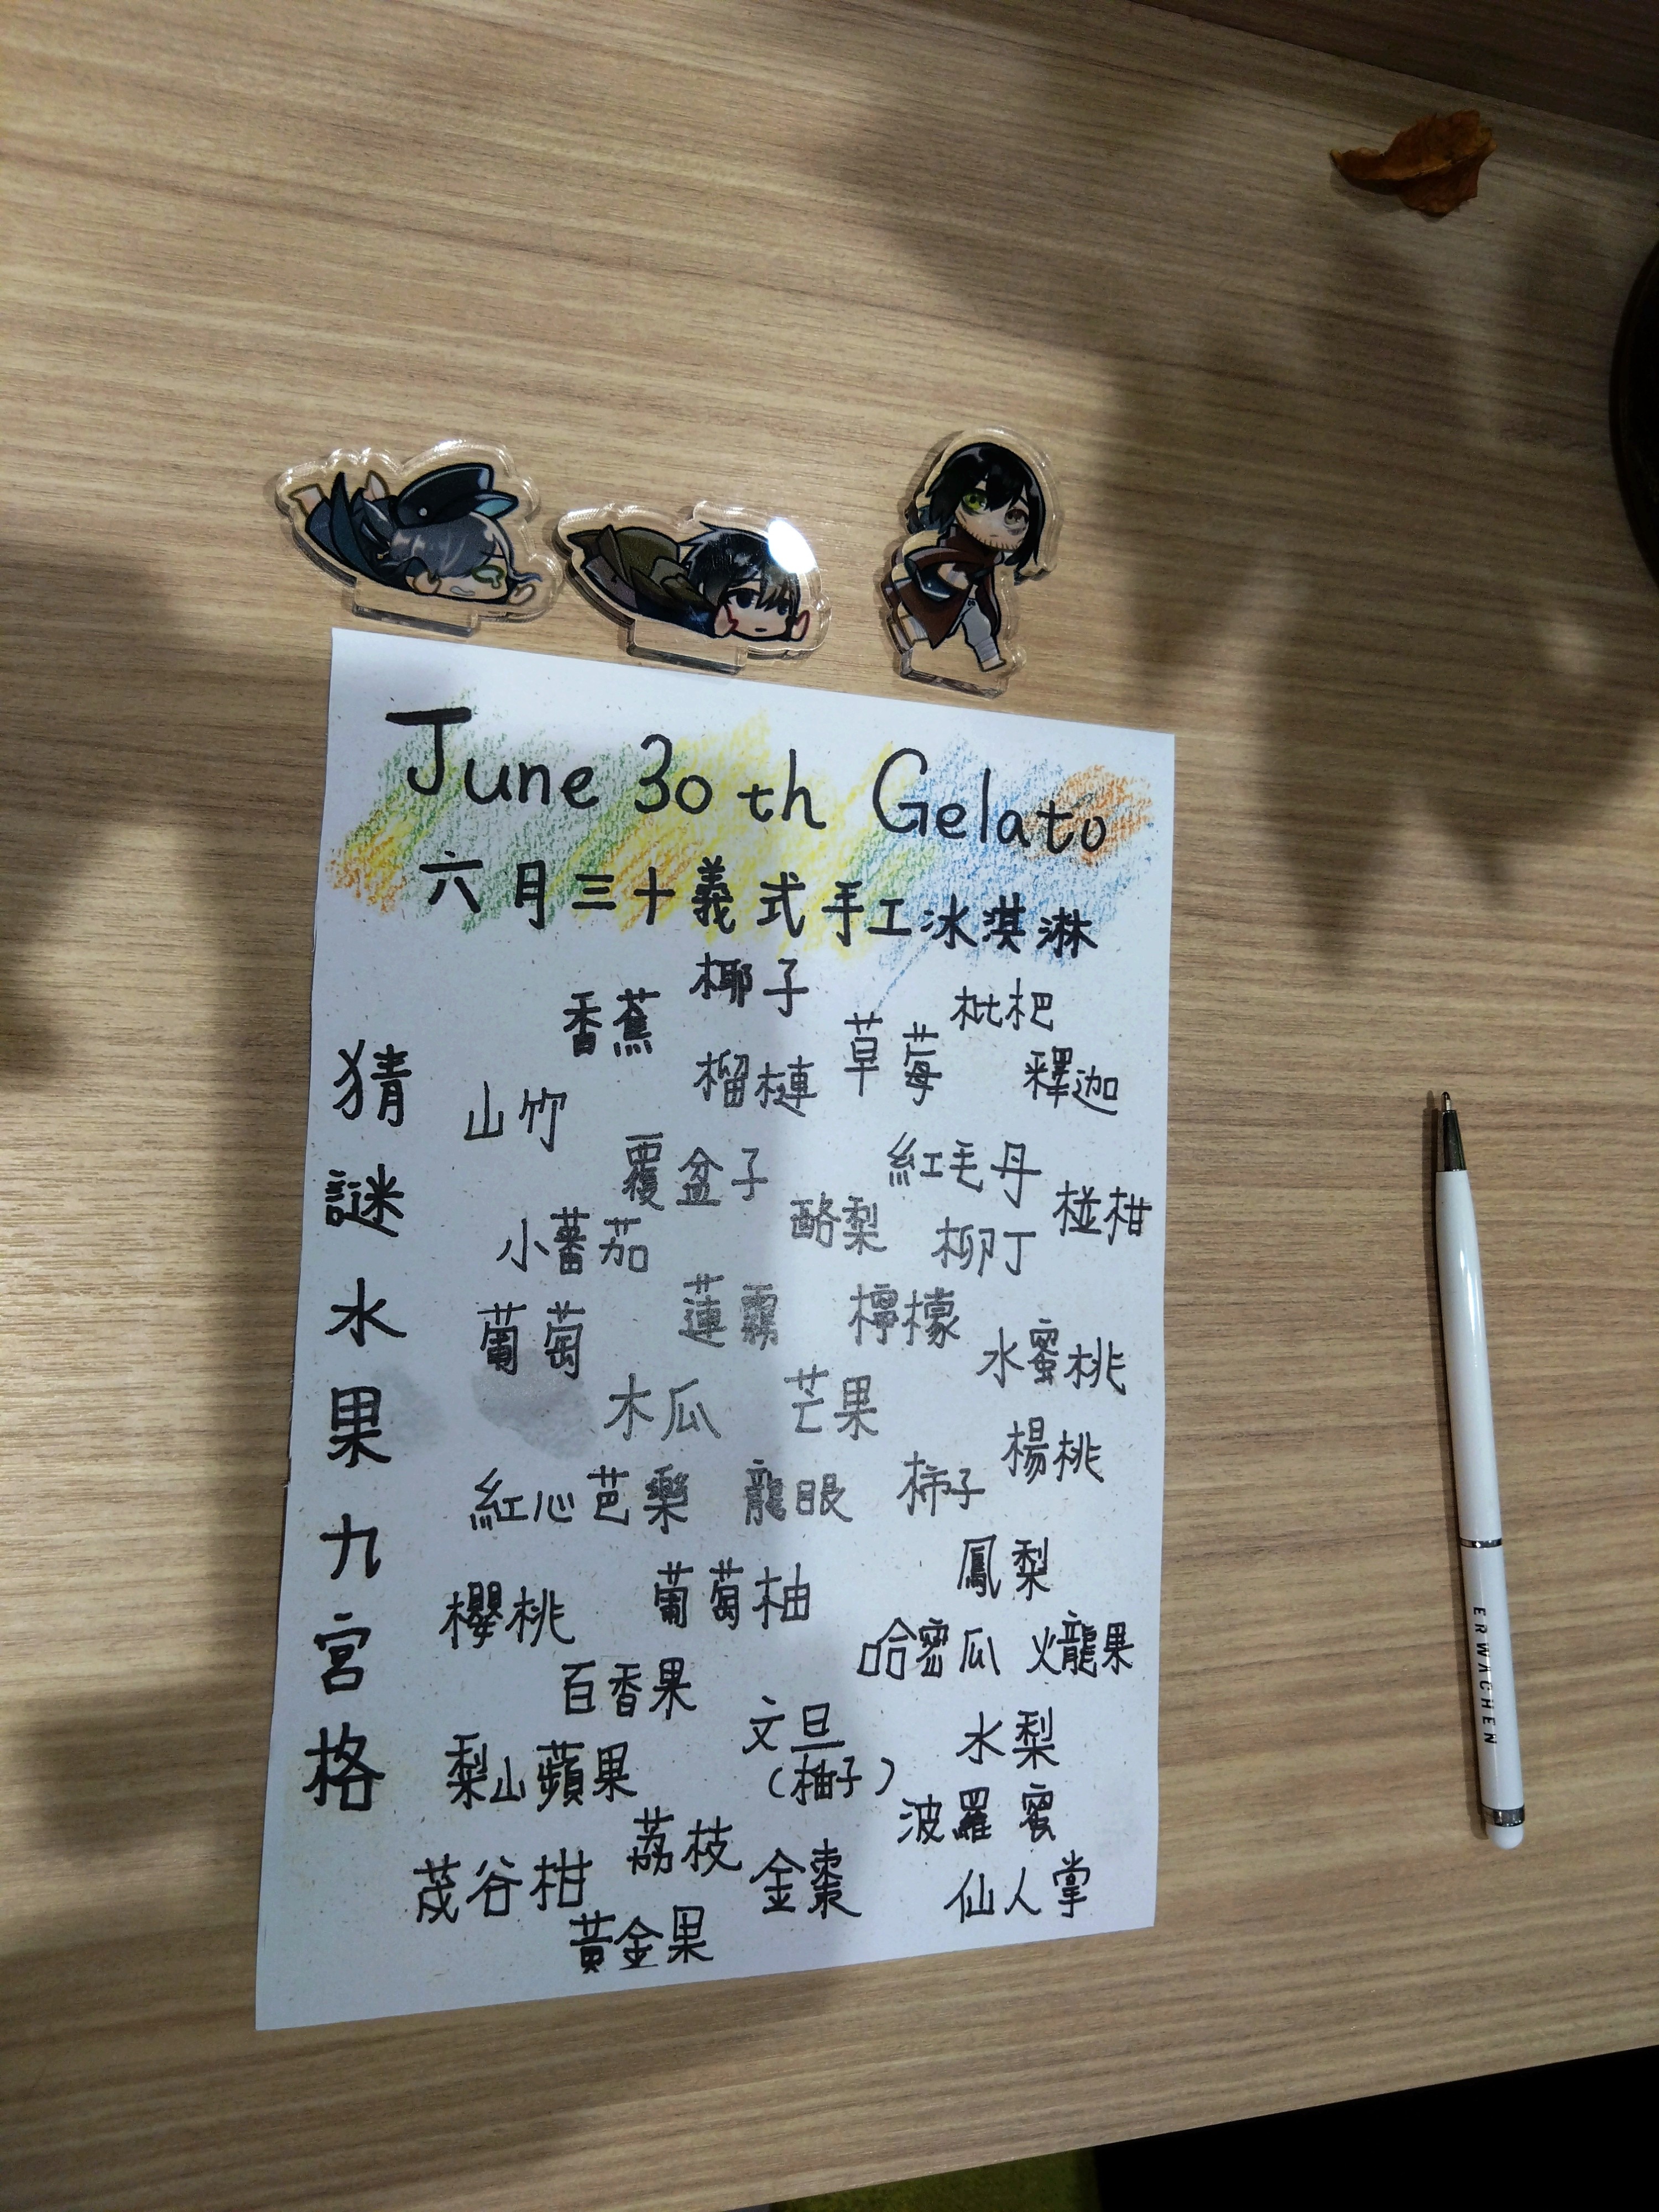 June 30th Gelato
六月三十義式手工冰淇淋
猜謎水果九宮格
椰子
香蕉
枇杷
草莓
榴槤
釋迦
山竹
覆盆子
紅毛丹
椪柑
酪梨
小蕃茄
柳丁
葡萄
蓮霧
檸檬
水蜜桃
木瓜
芒果
楊桃
紅心芭樂
龍眼
柿子
鳳梨
櫻桃
葡萄柚
哈密瓜
火龍果
百香果
文旦
(柚子)
水梨
梨山蘋果
波羅蜜
荔枝
茂谷柑
金棗
仙人掌
黃金果
ERWACHEN